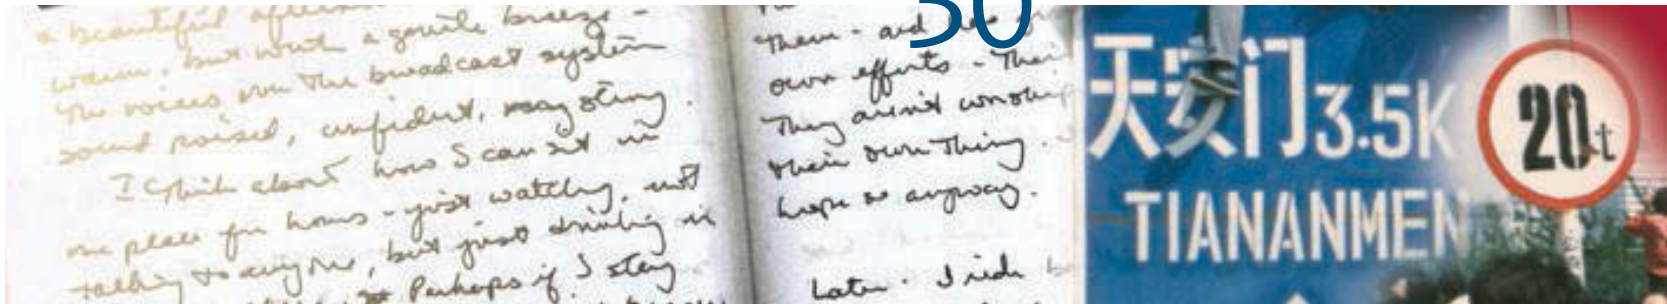 a beautiful
warm, but with a gentle breeze -
The voices over the broadcast system
sound poised, confident,
I think about how I can sit in
one place for hours - just watching, not
talking to anyone, but just drinking in
Perhaps if I stay
30
them - and
own efforts -
They aren't
their own thing.
hope so anyway.
Later. I ride
天安门3.5K
TIANANMEN
20t